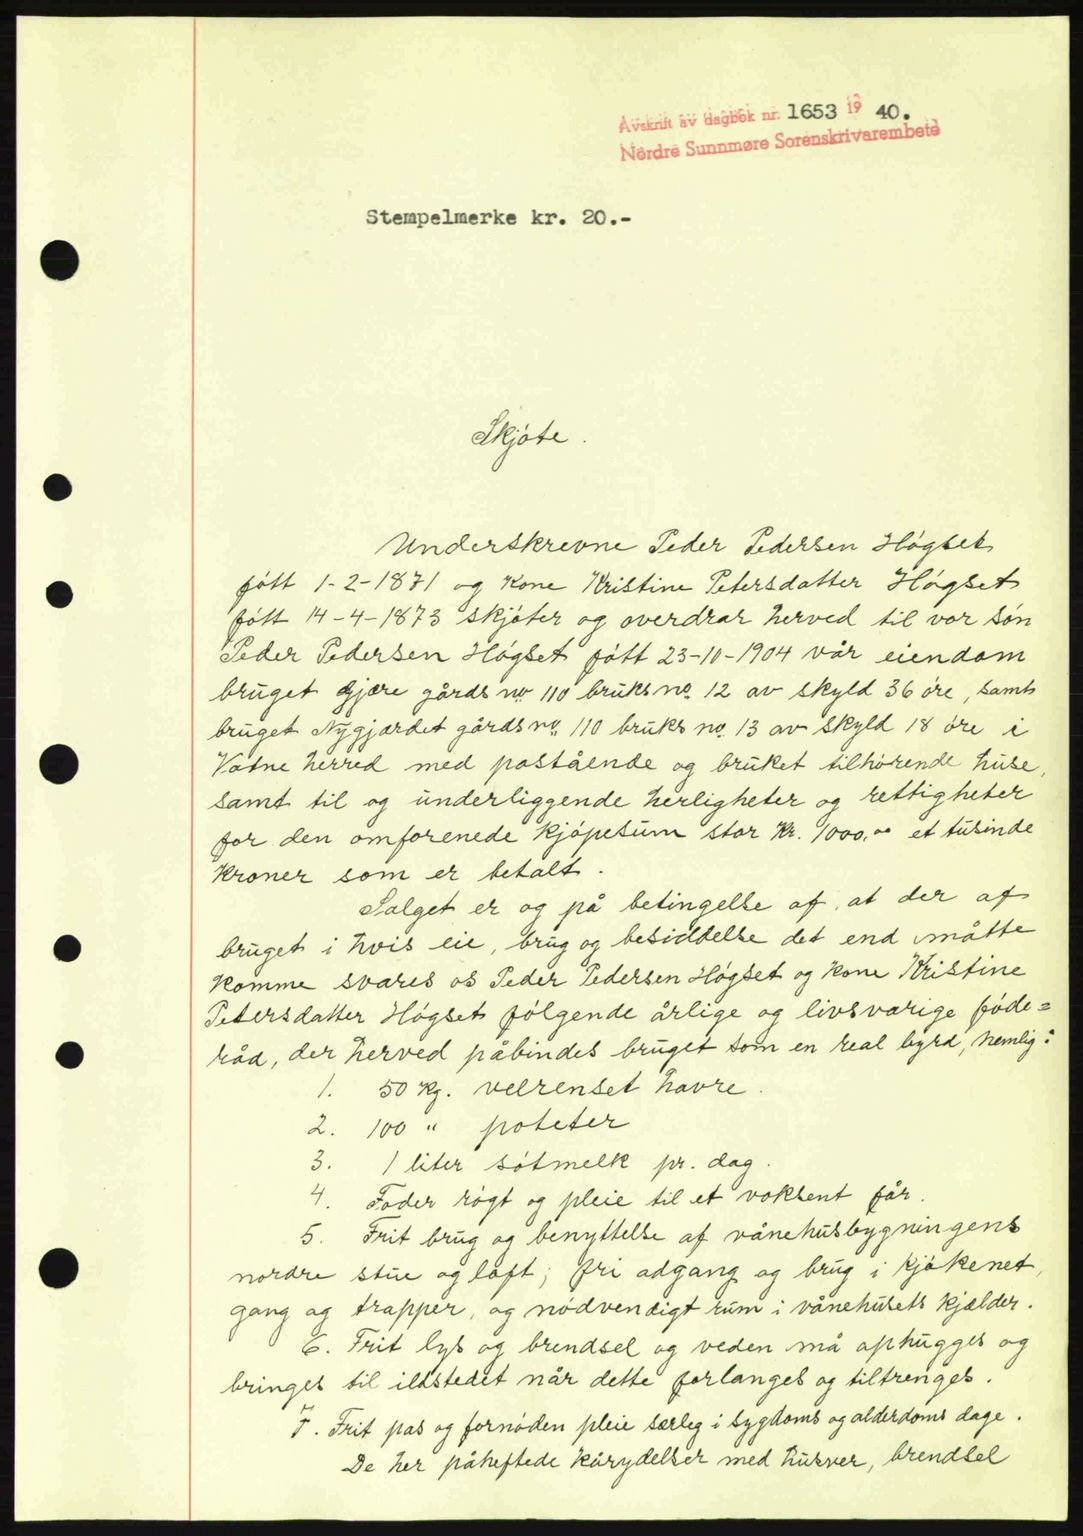 Avskrift av dagbok nr. 1653 19 40.
Nordre Sunnmøre Sorenskrivarembete
Stempelmerke kr. 20.-
Skjøte.
Underskrevne Peder Pedersen Høgset
fött 1-2-1871 og kone Kristine Petersdatter Høgset
fött 14-4-1873 skjøter og overdrar herved til vor søn
Peder Pedersen Høgset fött 23-10-1904 vår eiendom
bruget Gjære gårds no. 110 bruks no. 12 av skyld 36 öre, samt
bruget Nygjærdet gårds no. 110 bruks no. 13 av skyld 18 öre i
Vatne herred med påstående og bruket tilhørende huse,
samt til og underliggende herligheter og rettigheter
for den omforenede kjøpesum stor Kr. 1000.00 et tusinde
kroner som er betalt.
Salget er og på betingelse af, at der af
bruget i hvis eie, brug og besiddelse det end måtte
komme svares os Peder Pedersen Høgset og kone Kristine
Petersdatter Høgset følgende årlige og livsvarige føde=
råd, der herved påbindes bruget som en real byrd, nemlig:
1. 50 kg. velrenset havre.
2. 100 " poteter
3. 1 liter søtmelk pr. dag.
4. Foder røgt og pleie til et voksent får.
5. Frit brug og benyttelse af vånehusbygningens
nordre stue og loft; fri adgang og brug i kjøkenet,
gang og trapper, og nødvendigt rum i vånehusets kjælder.
6. Frit lys og brendsel og veden må ophugges og
bringes til ildstedet når dette forlanges og tiltrenges.
7. Frit pas og fornøden pleie særleg i sygdoms og alderdoms dage.
De her påheftede kårydelser med husver, brendsel